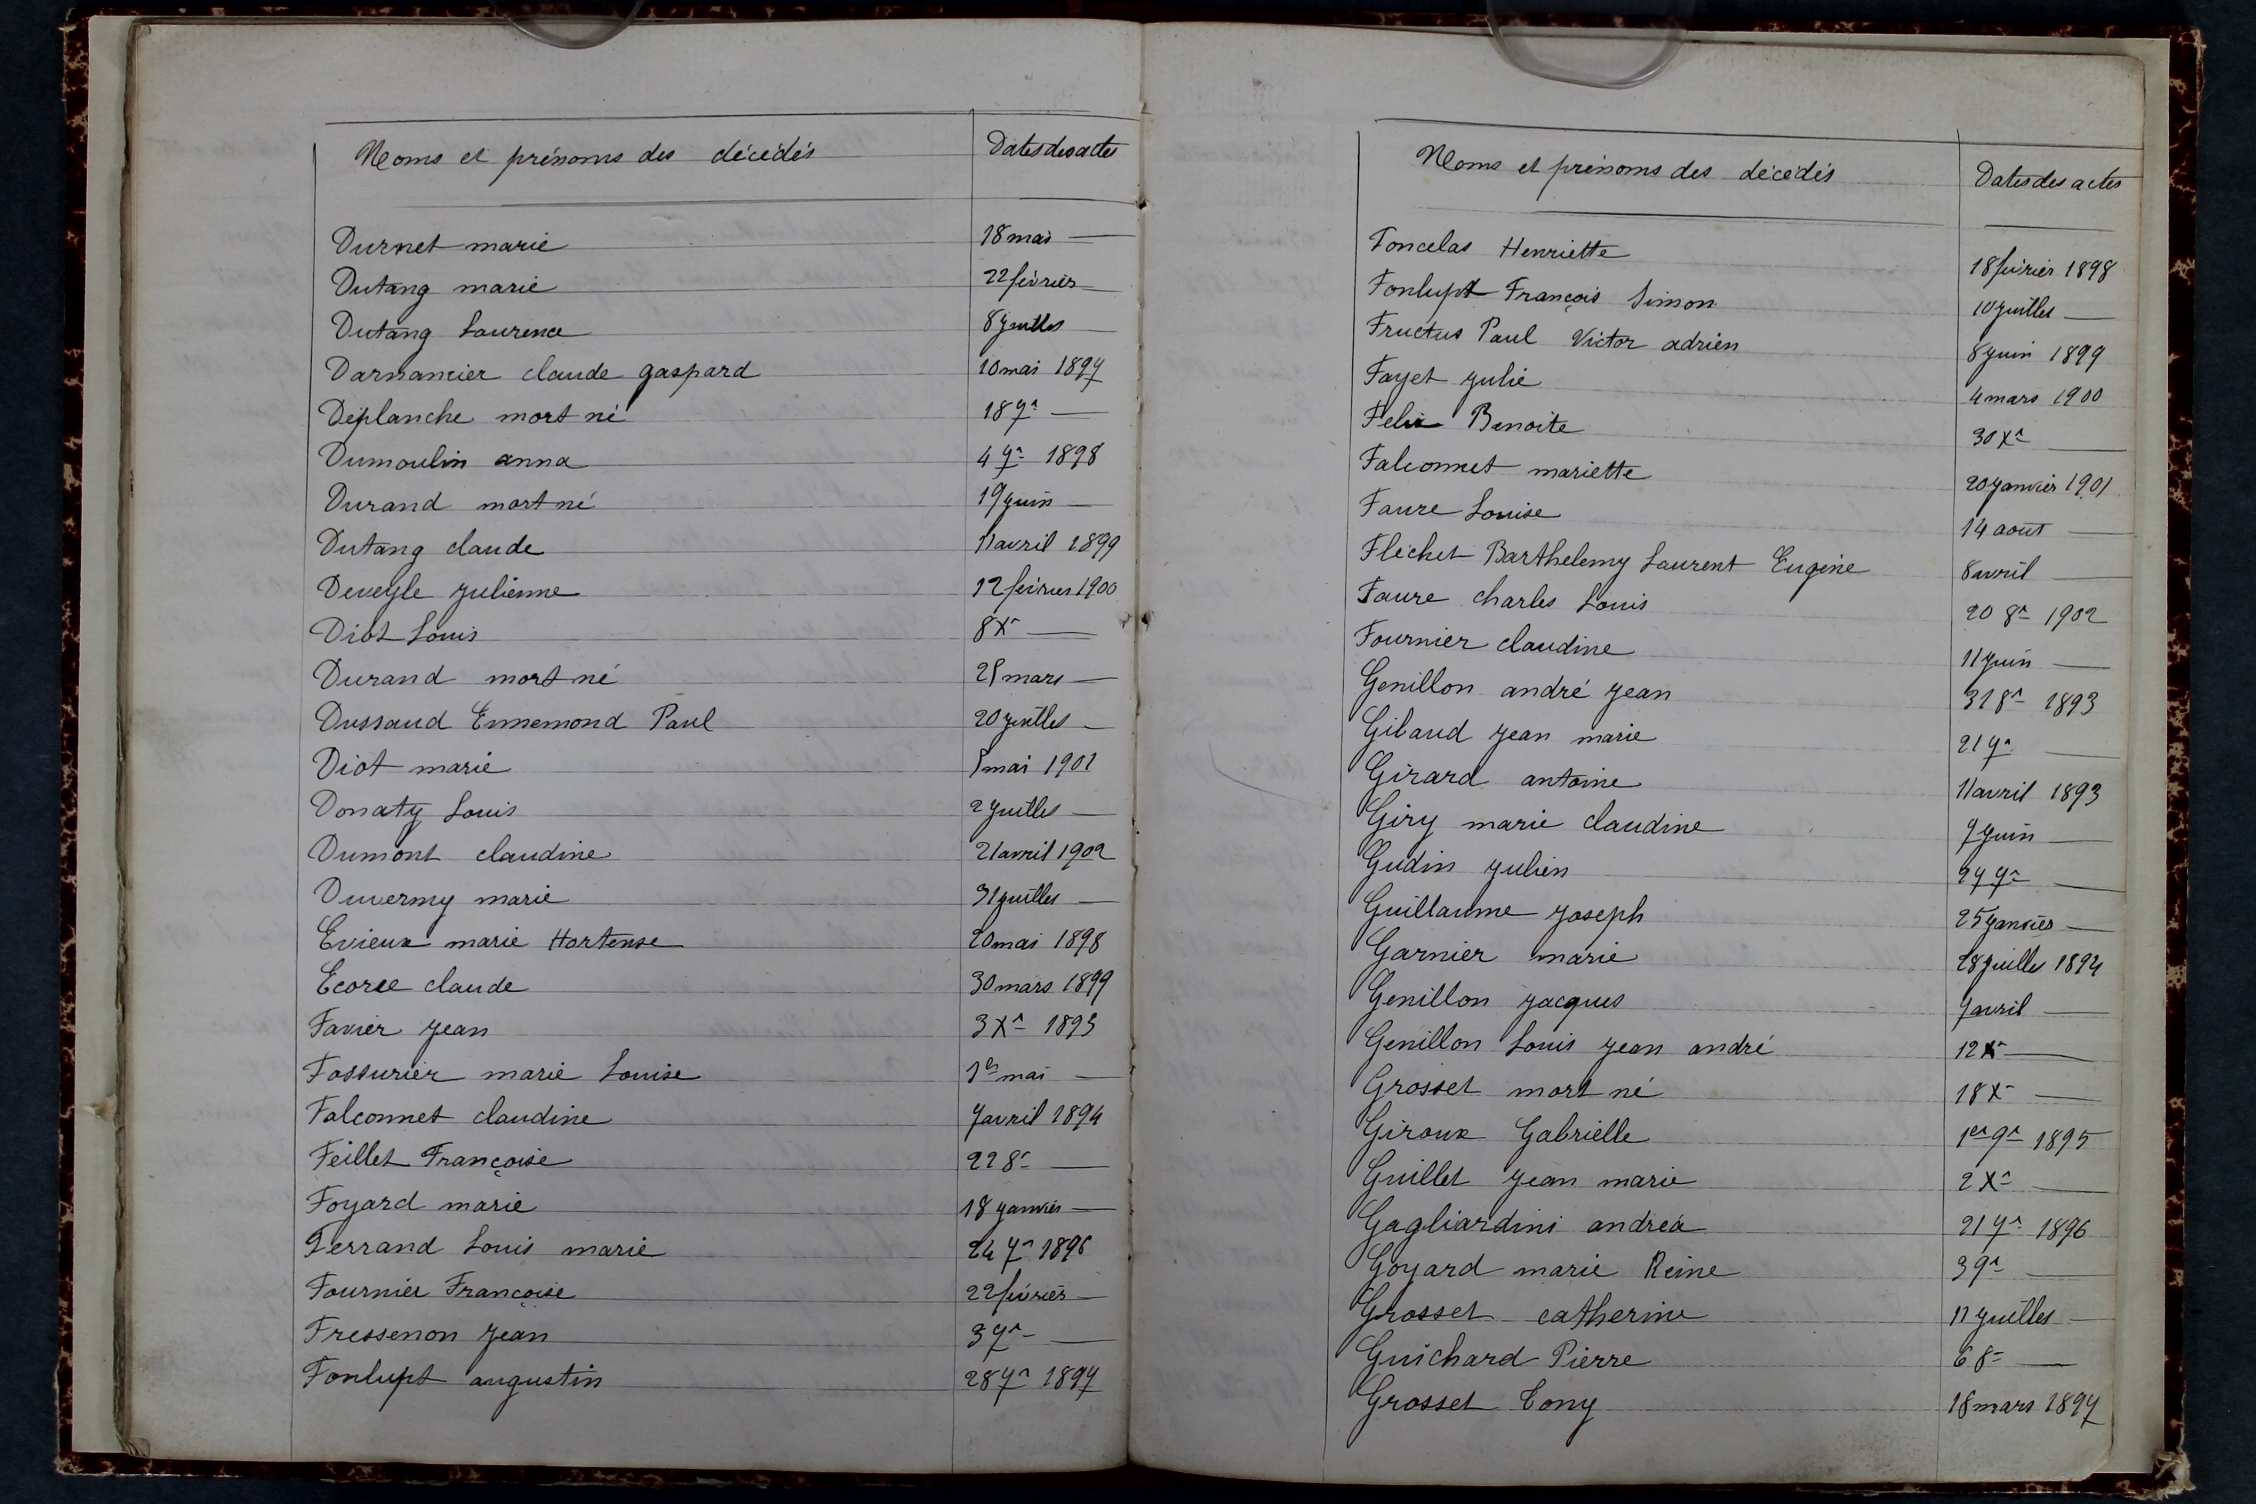 Noms et prénoms des décédés Dates des actes
Durnet marie 18 mai —
Dutang marie 22 février —
Dutang Laurence 8 juillet —
Darnancier claude gaspard 10 mai 1897
Déplanche mort né 18 7r —
Dumoulin anna 4 7r 1898
Durand mort né 19 juin —
Dutang claude 11 avril 1899
Deveyle julienne 12 février 1900
Diot Louis 8 Xr —
Durand mort né 25 mars —
Dussaud Ennemond Paul 20 juillet —
Diot marie 5 mai 1901
Donaty Louis 2 juillet —
Dumont claudine 21 avril 1902
Duvermy marie 31 juillet —
Evieux marie Hortense 20 mai 1898
Ecoree claude 30 mars 1899
Favier jean 3 Xr 1893
Fossurier marie Louise 1er mai —
Falconnet claudine 7 avril 1894
Feillet Françoise 22 8r —
Foyard marie 18 janvier —
Ferrand Louis marie 24 7r 1896
Fournier Françoise 22 février —
Fressenon jean 3 7r —
Fonlupt augustin 28 7r 1897
Noms et prénoms des décédés Dates des actes
Foncelas Henriette 18 février 1898
Fonlupt François Simon 10 juillet —
Fructus Paul Victor adrien 8 juin 1899
Fayet julie 4 mars 1900
Felix Benoite 30 Xr —
Falconnet mariette 20 janvier 1901
Faure Louise 14 août —
Fléchet Barthelemy Laurent Eugène 8 avril —
Faure charles Louis 20 8r 1902
Fournier claudine 11 juin —
Genillon andré jean 31 8r 1893
Gibaud jean marie 21 7r —
Girard antoine 11 avril 1893
Giry marie claudine 7 juin —
Gudin julien 27 7r —
Guillaume joseph 25 janvier —
Garnier marie 28 juillet 1894
Genillon jacques 7 avril —
Genillon Louis jean andré 12 Xr —
Grosset mort né 18 Xr —
Giroux Gabrielle 1er 9r 1895
Guillet jean marie 2 Xr —
Gagliardini andréa 21 7r 1896
Goyard marie Reine 3 9r —
Grosset catherine 11 juillet —
Guichard Pierre 6 8r —
Grosset Tony 18 mars 1897